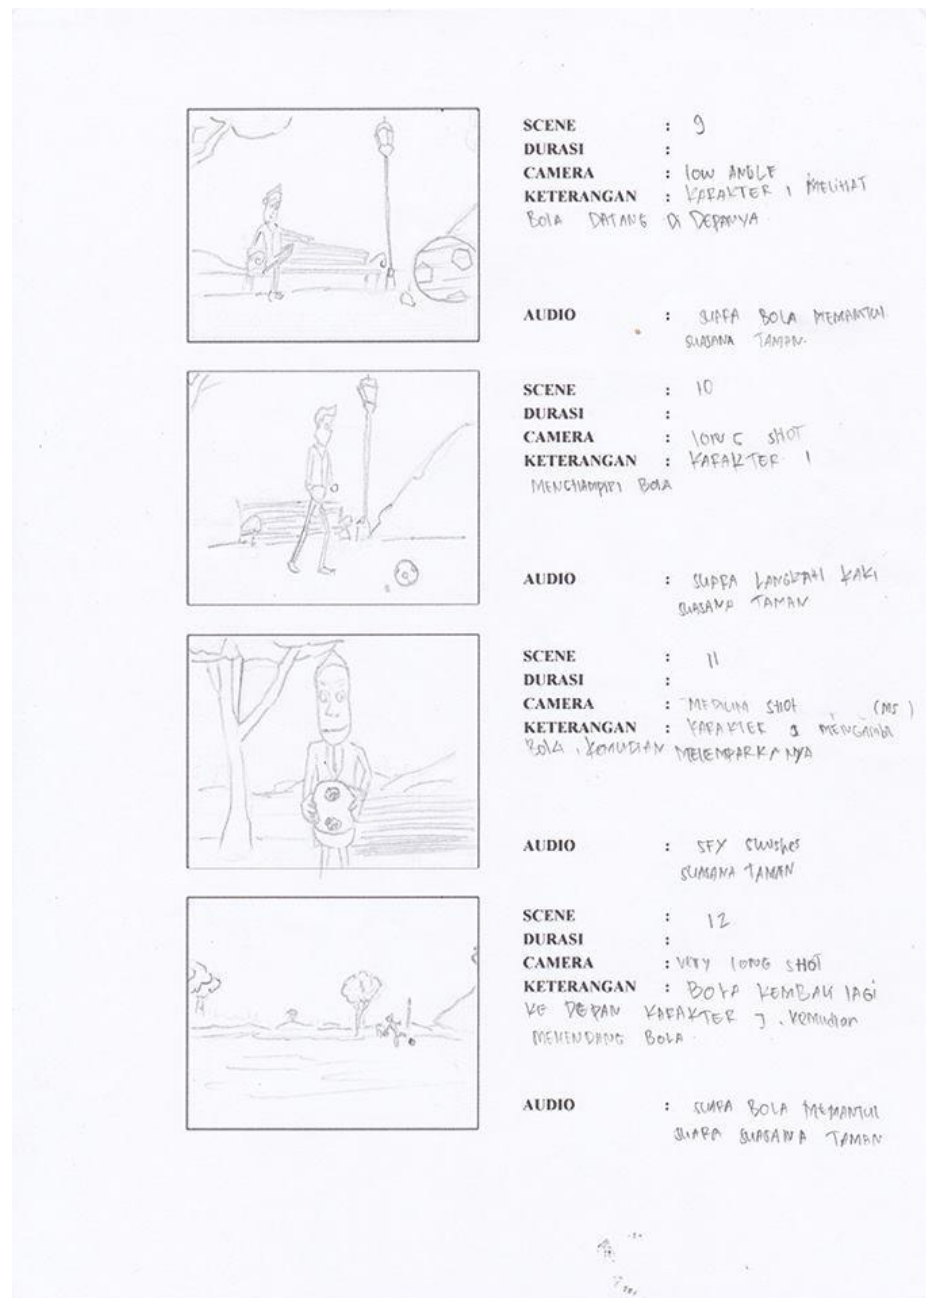 SCENE : 9
DURASI :
CAMERA : low ANGLE
KETERANGAN : KARAKTER 1 MELIHAT
BOLA DATANG DI DEPANYA
AUDIO : SUARA BOLA MEMANTUL
SUASANA TAMAN.
SCENE : 10
DURASI :
CAMERA : LONG SHOT
KETERANGAN : KARAKTER 1
MENGHAMPIRI BOLA
AUDIO : SUARA LANGKAH KAKI
SUASANA TAMAN
SCENE : 11
DURASI :
CAMERA : MEDIUM SHOT (MS)
KETERANGAN : KARAKTER 1 MENGAMBIL
BOLA, KEMUDIAN MELEMPARKANYA
AUDIO : SFX
SUASANA TAMAN
SCENE : 12
DURASI :
CAMERA : VERY LONG SHOT
KETERANGAN : BOLA KEMBALI LAGI
KE DEPAN KARAKTER 1. Kemudian
MENENDANG BOLA.
AUDIO : SUARA BOLA MEMANTUL
SUARA SUASANA TAMAN